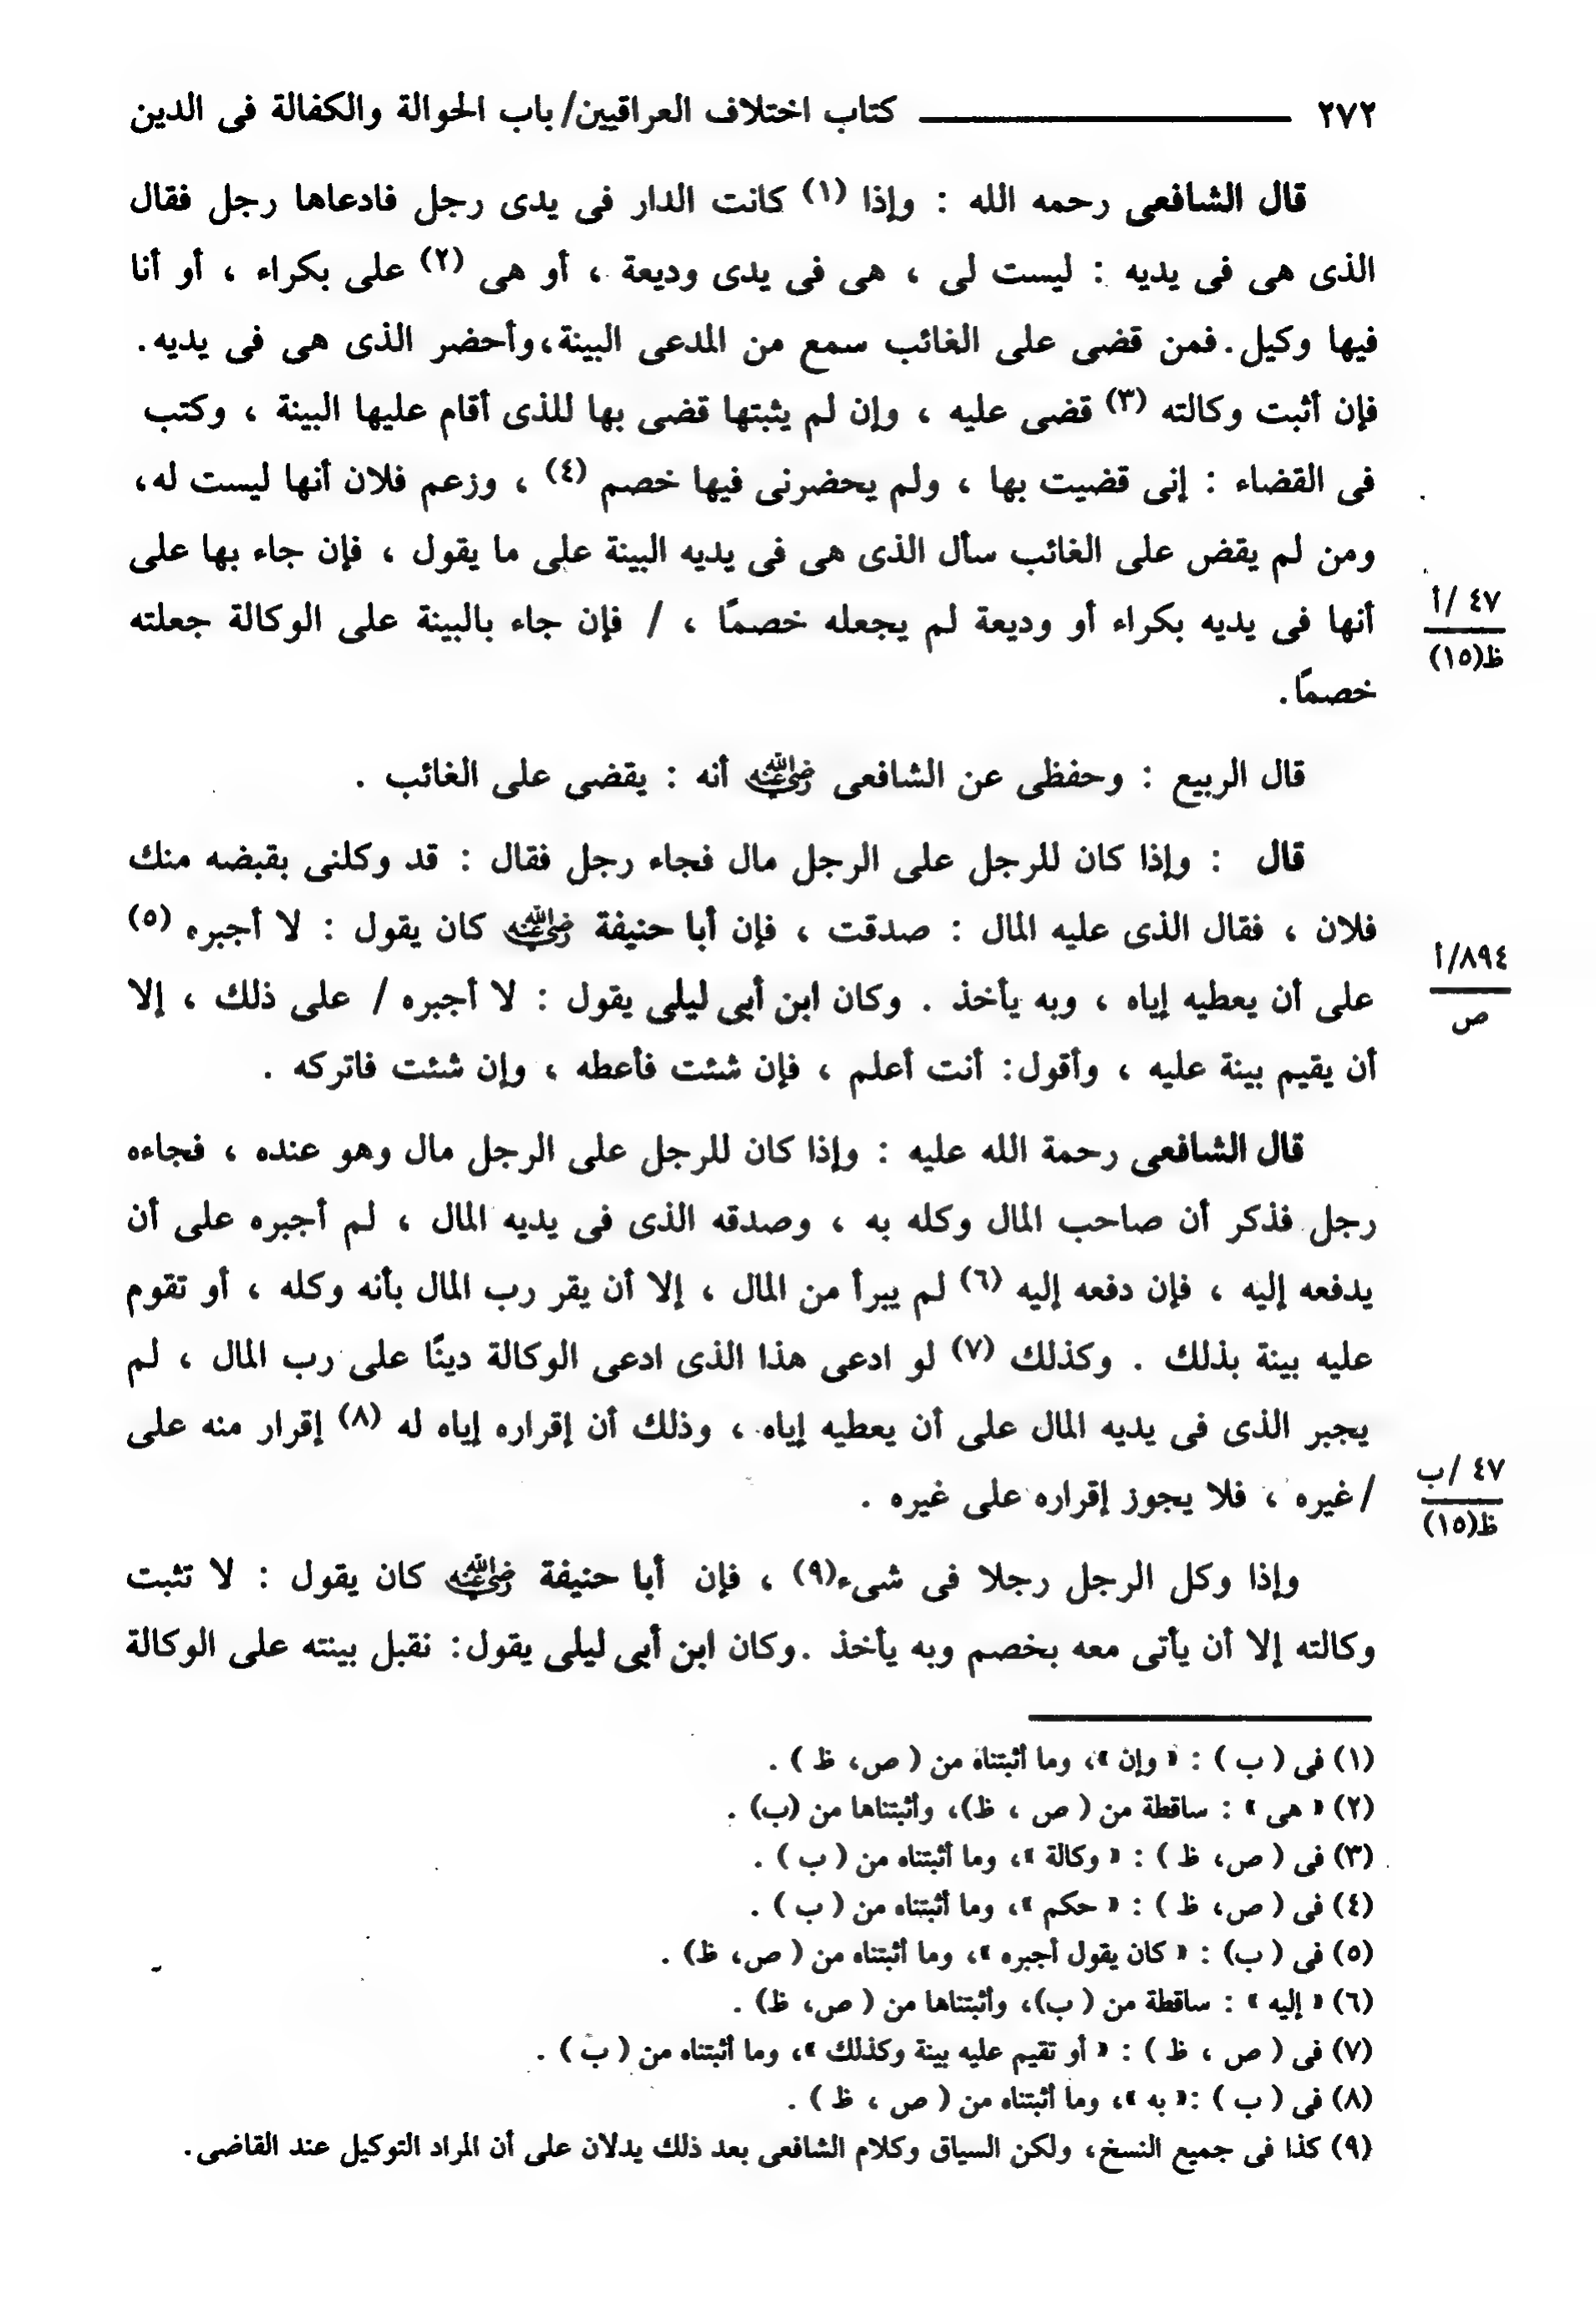 ٢٧٢ ــــــــــــ كتاب اختلاف العراقيين/ باب الحوالة والكفالة فى الدين
قال الشافعى رحمه الله : وإذا (١) كانت الدار فى يدى رجل فادعاها رجل فقال
الذى هى فى يديه : ليست لى ، هى فى يدى وديعة ، أو هى (٢) على بكراء ، أو أنا
فيها وكيل . فمن قضى على الغائب سمع من المدعى البينة ، وأحضر الذى هى فى يديه .
فإن أثبت وكالته (٣) قضى عليه ، وإن لم يثبتها قضى بها للذى أقام عليها البينة ، وكتب
فى القضاء : إنى قضيت بها ، ولم يحضرنى فيها خصم (٤) ، وزعم فلان أنها ليست له ،
ومن لم يقض على الغائب سأل الذى هى فى يديه البينة على ما يقول ، فإن جاء بها على
أنها فى يديه بكراء أو وديعة لم يجعله خصمًا ، / فإن جاء بالبينة على الوكالة جعلته
٤٧ /أ
ظ(١٥)
خصمًا .
قال الربيع : وحفظى عن الشافعى رضي الله عنه أنه : يقضى على الغائب .
قال : وإذا كان للرجل على الرجل مال فجاء رجل فقال : قد وكلنى بقبضه منك
فلان ، فقال الذى عليه المال : صدقت ، فإن أبا حنيفة رضي الله عنه كان يقول : لا أجبره (٥)
على أن يعطيه إياه ، وبه يأخذ . وكان ابن أبى ليلى يقول : لا أجبره / على ذلك ، إلا
٨٩٤/أ
ص
أن يقيم بينة عليه ، وأقول : أنت أعلم ، فإن شئت فأعطه ، وإن شئت فاتركه .
قال الشافعى رحمة الله عليه : وإذا كان للرجل على الرجل مال وهو عنده ، فجاءه
رجل فذكر أن صاحب المال وكله به ، وصدقه الذى فى يديه المال ، لم أجبره على أن
يدفعه إليه ، فإن دفعه إليه (٦) لم يبرأ من المال ، إلا أن يقر رب المال بأنه وكله ، أو تقوم
عليه بينة بذلك . وكذلك (٧) لو ادعى هذا الذى ادعى الوكالة دينًا على رب المال ، لم
يجبر الذى فى يديه المال على أن يعطيه إياه ، وذلك أن إقراره إياه له (٨) إقرار منه على
/ غيره ، فلا يجوز إقراره على غيره .
٤٧ /ب
ظ(١٥)
وإذا وكل الرجل رجلا فى شىء(٩) ، فإن أبا حنيفة رضي الله عنه كان يقول : لا تثبت
وكالته إلا أن يأتى معه بخصم وبه يأخذ . وكان ابن أبى ليلى يقول : نقبل بينته على الوكالة
(١) فى ( ب ) : « وإن »، وما أثبتناه من ( ص، ظ ) .
(٢) « هى » : ساقطة من ( ص ، ظ)، وأثبتناها من (ب) .
(٣) فى ( ص، ظ ) : « وكالة »، وما أثبتناه من ( ب ) .
(٤) فى ( ص، ظ ) : « حكم »، وما أثبتناه من ( ب ) .
(٥) فى ( ب) : « كان يقول أجبره »، وما أثبتناه من ( ص، ظ) .
(٦) « إليه » : ساقطة من ( ب)، وأثبتناها من ( ص، ظ) .
(٧) فى ( ص ، ظ ) : « أو تقيم عليه بينة وكذلك »، وما أثبتناه من ( ب ) .
(٨) فى ( ب ) :« به »، وما أثبتناه من ( ص ، ظ ) .
(٩) كذا فى جميع النسخ، ولكن السياق وكلام الشافعى بعد ذلك يدلان على أن المراد التوكيل عند القاضى .